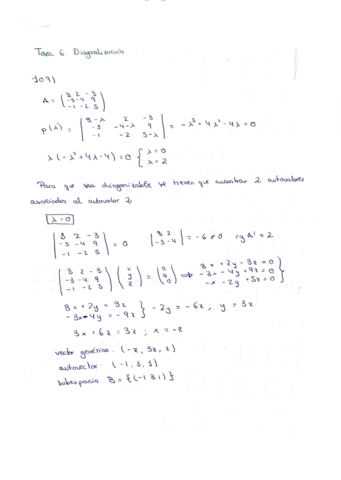 Tema 6 Diagonalización
109)
A = (3 2 -3
-3 -4 9
-1 -2 5)
p(λ) = |3-λ 2 -3
-3 -4-λ 9
-1 -2 5-λ| = -λ³ + 4λ² - 4λ = 0
λ(-λ² + 4λ - 4) = 0 { λ = 0
λ = 2
Para que sea diagonizable se tienen que encontrar 2 autovalores
asociados al autovalor 2
λ = 0
|3 2 -3
-3 -4 9
-1 -2 5| = 0 |3 2
-3 -4| = -6 ≠ 0 rg A' = 2
(3 2 -3
-3 -4 9
-1 -2 5) (x
y
z) = (0
0
0) ⇒ 3x + 2y - 3z = 0
-3x - 4y + 9z = 0
-x - 2y + 5z = 0 }
3x + 2y = 3z
-3x - 4y = -9z } -2y = -6z ; y = 3z
3x + 6z = 3z ; x = -z
vector genérico: (-z, 3z, z)
autovector: (-1, 3, 1)
subespacio B = {(-1 3 1)}